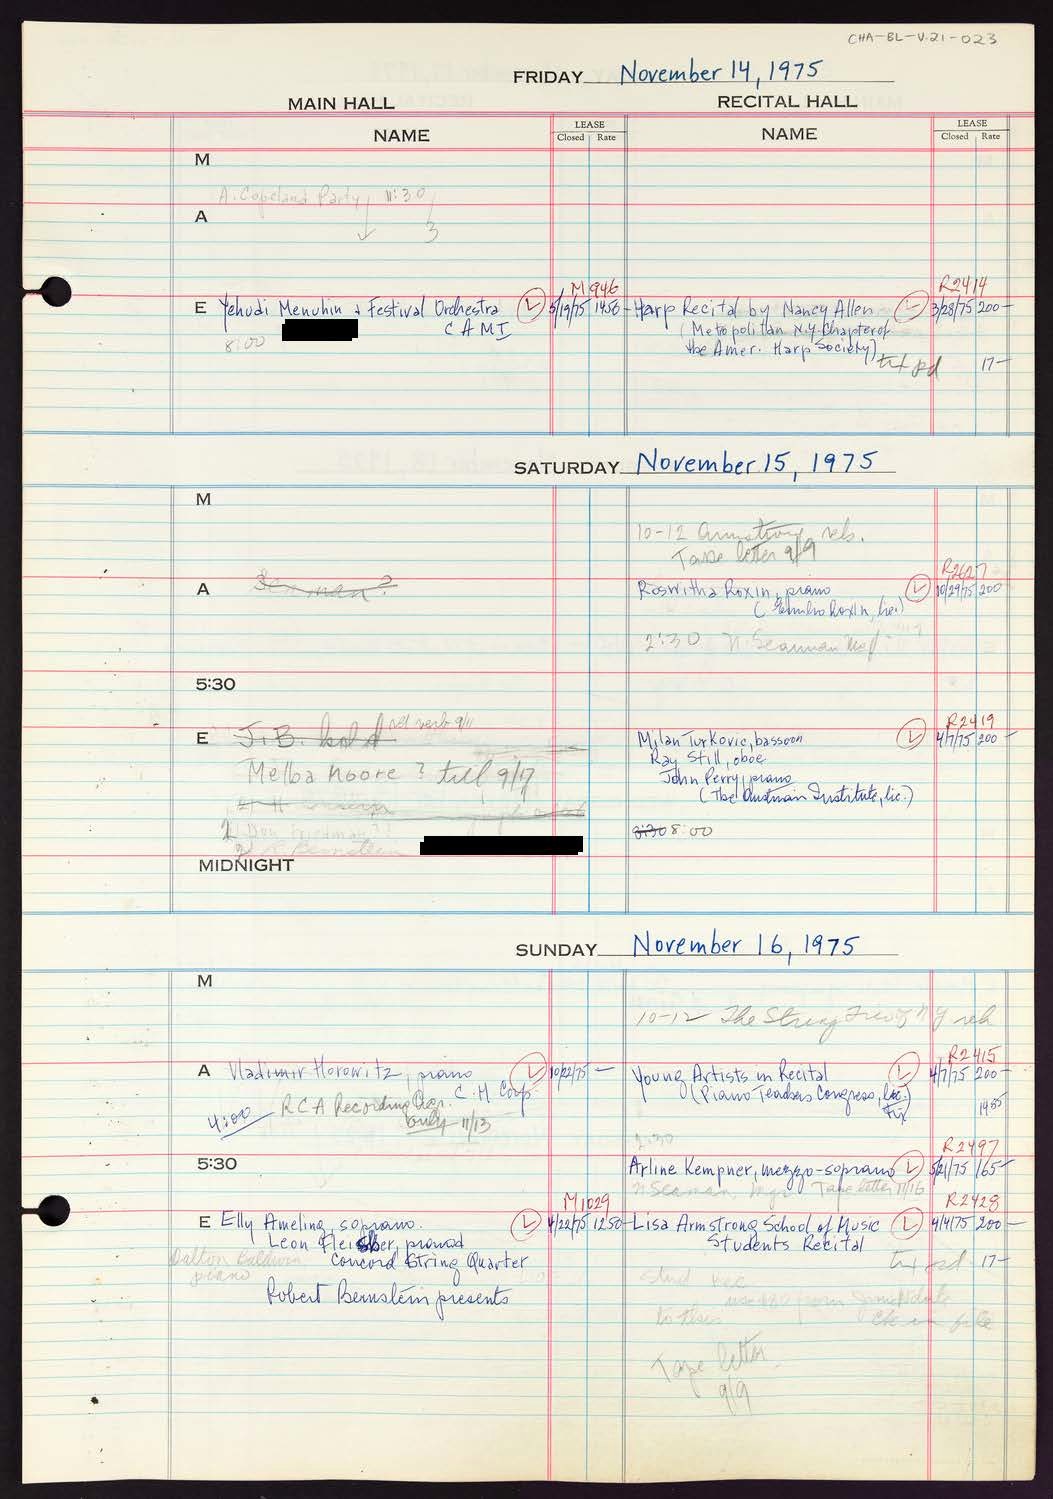 CHA-BL-V.21-023
FRIDAY November 14, 1975
MAIN HALL
RECITAL HALL
NAME
LEASE
Closed Rate
NAME
LEASE
Closed Rate
M
A. Copeland Party 11:30
A
3
M946
R2414
E Yehudi Menuhin & Festival Orchestra L 5/19/75 1450-
CAMI
8:00
Harp Recital by Nancy Allen L 3/28/75 200-
(Metropolitan N.Y. Chapter of
the Amer. Harp Society)
17-
SATURDAY November 15, 1975
M
10-12 Armstrong reh.
Tape letter 9/9
R2627
A
Roswitha Roxin, piano L 10/29/75 200
Roxin, lic.)
2:30 N. Seaman
5:30
R2419
E J.B. hold rel verb 9/11
Melba Moore? till 9/17
2) Don Friedman??
Bernstein
Milan Turkovic, bassoon L 4/7/75 200-
Ray Still, oboe
John Perry, piano
(The Austrian Institute, lic.)
8:30 8:00
MIDNIGHT
SUNDAY November 16, 1975
M
10-12 The String Trio of NY reh
R2415
A Vladimir Horowitz, piano L 10/22/75 -
C.H. Corp.
4:00 RCA Recording
only 11/13
Young Artists in Recital L 4/7/75 200-
(Piano Teachers Congress, lic.)
Fix
2:30
R2497
5:30
Arline Kempner, mezzo-soprano L 5/21/75 165-
N Seaman, Mgr. Tape letter 11/16
M1029
R2428
E Elly Ameling, soprano. L 4/22/75 1250-
Leon Fleisher, pianist
Dalton Baldwin
piano
Concord String Quartet
Robert Bernstein presents
Lisa Armstrong School of Music L 4/4/75 200-
Students Recital
17-
stud rec
to this
ck in file
Tape letter
9/9